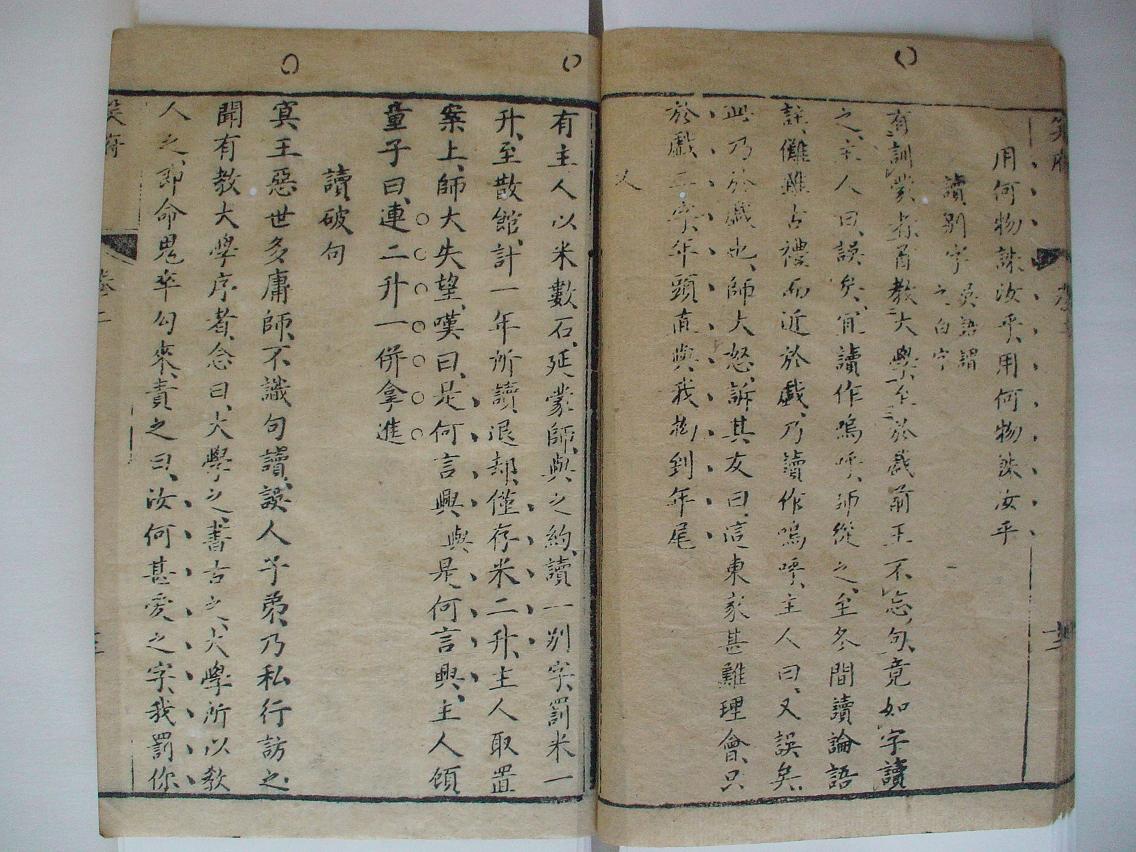 用何物誅汝乎、用何物誅汝乎
讀别字
吳語謂
之白字
有訓蒙者首教大學、至於戲前王不忘句、竟如字讀
之、主人曰、誤矣、宜讀作嗚呼、師從之、至冬間讀論語
註、儺雖古禮而近於戲、乃讀作嗚呼、主人曰、又誤矣、
此乃於戲也、師大怒、訴其友曰、這東家甚難理會、只
於戲二字、年頭直與我拗到年尾
又
有主人以米數石、延蒙師、與之約、讀一别字、罰米一
升、至散館、計一年所讀、退却、僅存米二升、主人取置
案上、師大失望、嘆曰、是何言興、與是何言興、主人顧
童子曰、連二升一併拿進
讀破句
冥王惡世多庸師、不識句讀、誤人子弟、乃私行訪之、
聞有教大學序者、念曰、大學之、書古之、大學所以教
人之、即命鬼卒勾來、責之曰、汝何甚愛之字、我罰你
笑府
卷二